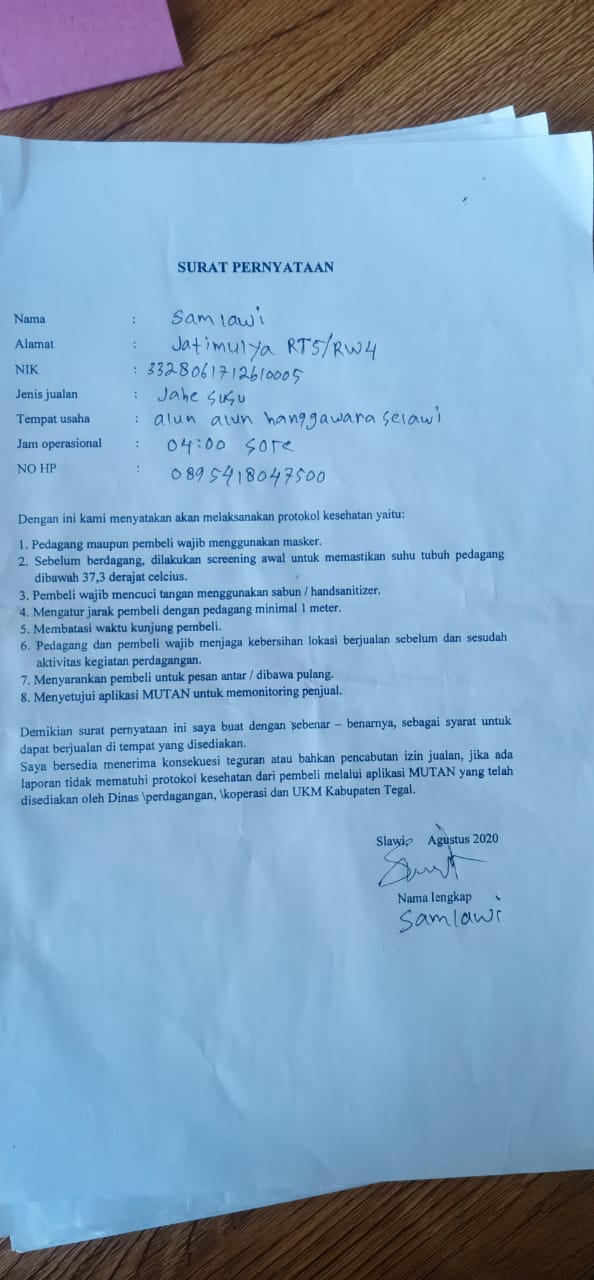 SURAT PERNYATAAN
Nama : Samlawi
Alamat : Jatimulya RT5/RW4
NIK : 3328061712610005
Jenis jualan : Jahe susu
Tempat usaha : alun alun hanggawara selawi
Jam operasional : 04:00 sore
NO HP : 0895418047500
Dengan ini kami menyatakan akan melaksanakan protokol kesehatan yaitu:
1. Pedagang maupun pembeli wajib menggunakan masker.
2. Sebelum berdagang, dilakukan screening awal untuk memastikan suhu tubuh pedagang
dibawah 37,3 derajat celcius.
3. Pembeli wajib mencuci tangan menggunakan sabun / handsanitizer.
4. Mengatur jarak pembeli dengan pedagang minimal 1 meter.
5. Membatasi waktu kunjung pembeli.
6. Pedagang dan pembeli wajib menjaga kebersihan lokasi berjualan sebelum dan sesudah
aktivitas kegiatan perdagangan.
7. Menyarankan pembeli untuk pesan antar / dibawa pulang.
8. Menyetujui aplikasi MUTAN untuk memonitoring penjual.
Demikian surat pernyataan ini saya buat dengan sebenar – benarnya, sebagai syarat untuk
dapat berjualan di tempat yang disediakan.
Saya bersedia menerima konsekuesi teguran atau bahkan pencabutan izin jualan, jika ada
laporan tidak mematuhi protokol kesehatan dari pembeli melalui aplikasi MUTAN yang telah
disediakan oleh Dinas \perdagangan, \koperasi dan UKM Kabupaten Tegal.
Slawi, Agustus 2020
Nama lengkap
Samlawi